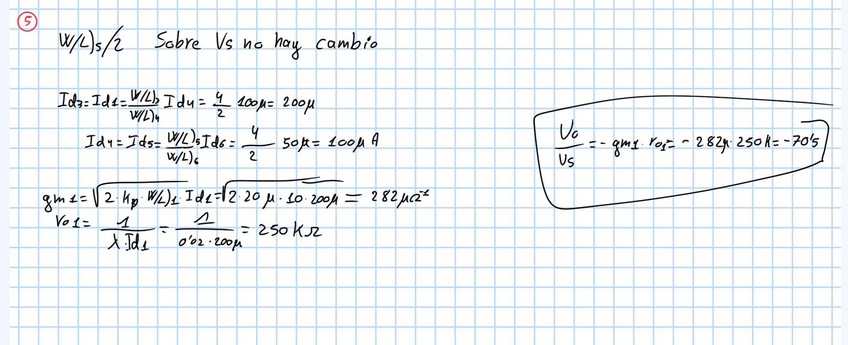 5
W/L)5/2 Sobre Vs no hay cambio
Id3=Id1=W/L)3/W/L)4 Id4=4/2 100μ=200μ
Id4=Id5=W/L)5/W/L)6 Id6=4/2 50μ=100μA
gm1=√2·Kp·W/L)1·Id1=√2·20μ·10·200μ=282μΩ-1
Vo1=1/λ·Id1=1/0'02·200μ=250KΩ
Vo/Vs=-gm1·ro1=-282μ·250K=-70'5